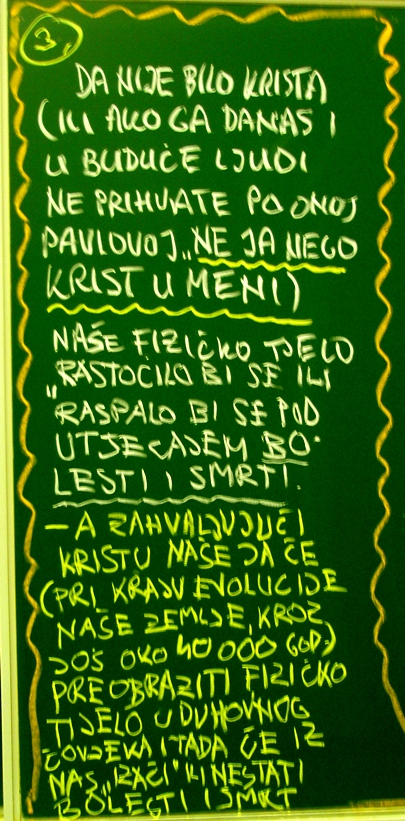 3,
DA NIJE BILO KRISTA
(ILI AKO GA DANAS I
U BUDUĆE LJUDI
NE PRIHVATE PO ONOJ
PAVLOVOJ „NE JA NEGO
KRIST U MENI)
NAŠE FIZIČKO TJELO
"RASTOČILO BI SE ILI
RASPALO BI SE POD
UTJECAJEM BO-
LESTI I SMRTI.
- A ZAHVALJUJUĆI
KRISTU NAŠE JA ĆE
(PRI KRAJU EVOLUCIJE
NAŠE ZEMLJE, KROZ
JOŠ OKO 40 000 GOD.)
PREOBRAZITI FIZIČKO
TIJELO U DUHOVNOG
ČOVJEKA I TADA ĆE IZ
NAS „IZAĆI" ILI NESTATI
BOLEST I SMRT